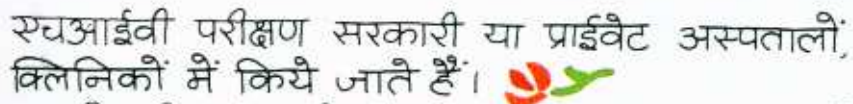 एचआईवी परीक्षण सरकारी या प्राईवेट अस्पतालों,
क्लिनिकों में किये जाते हैं।